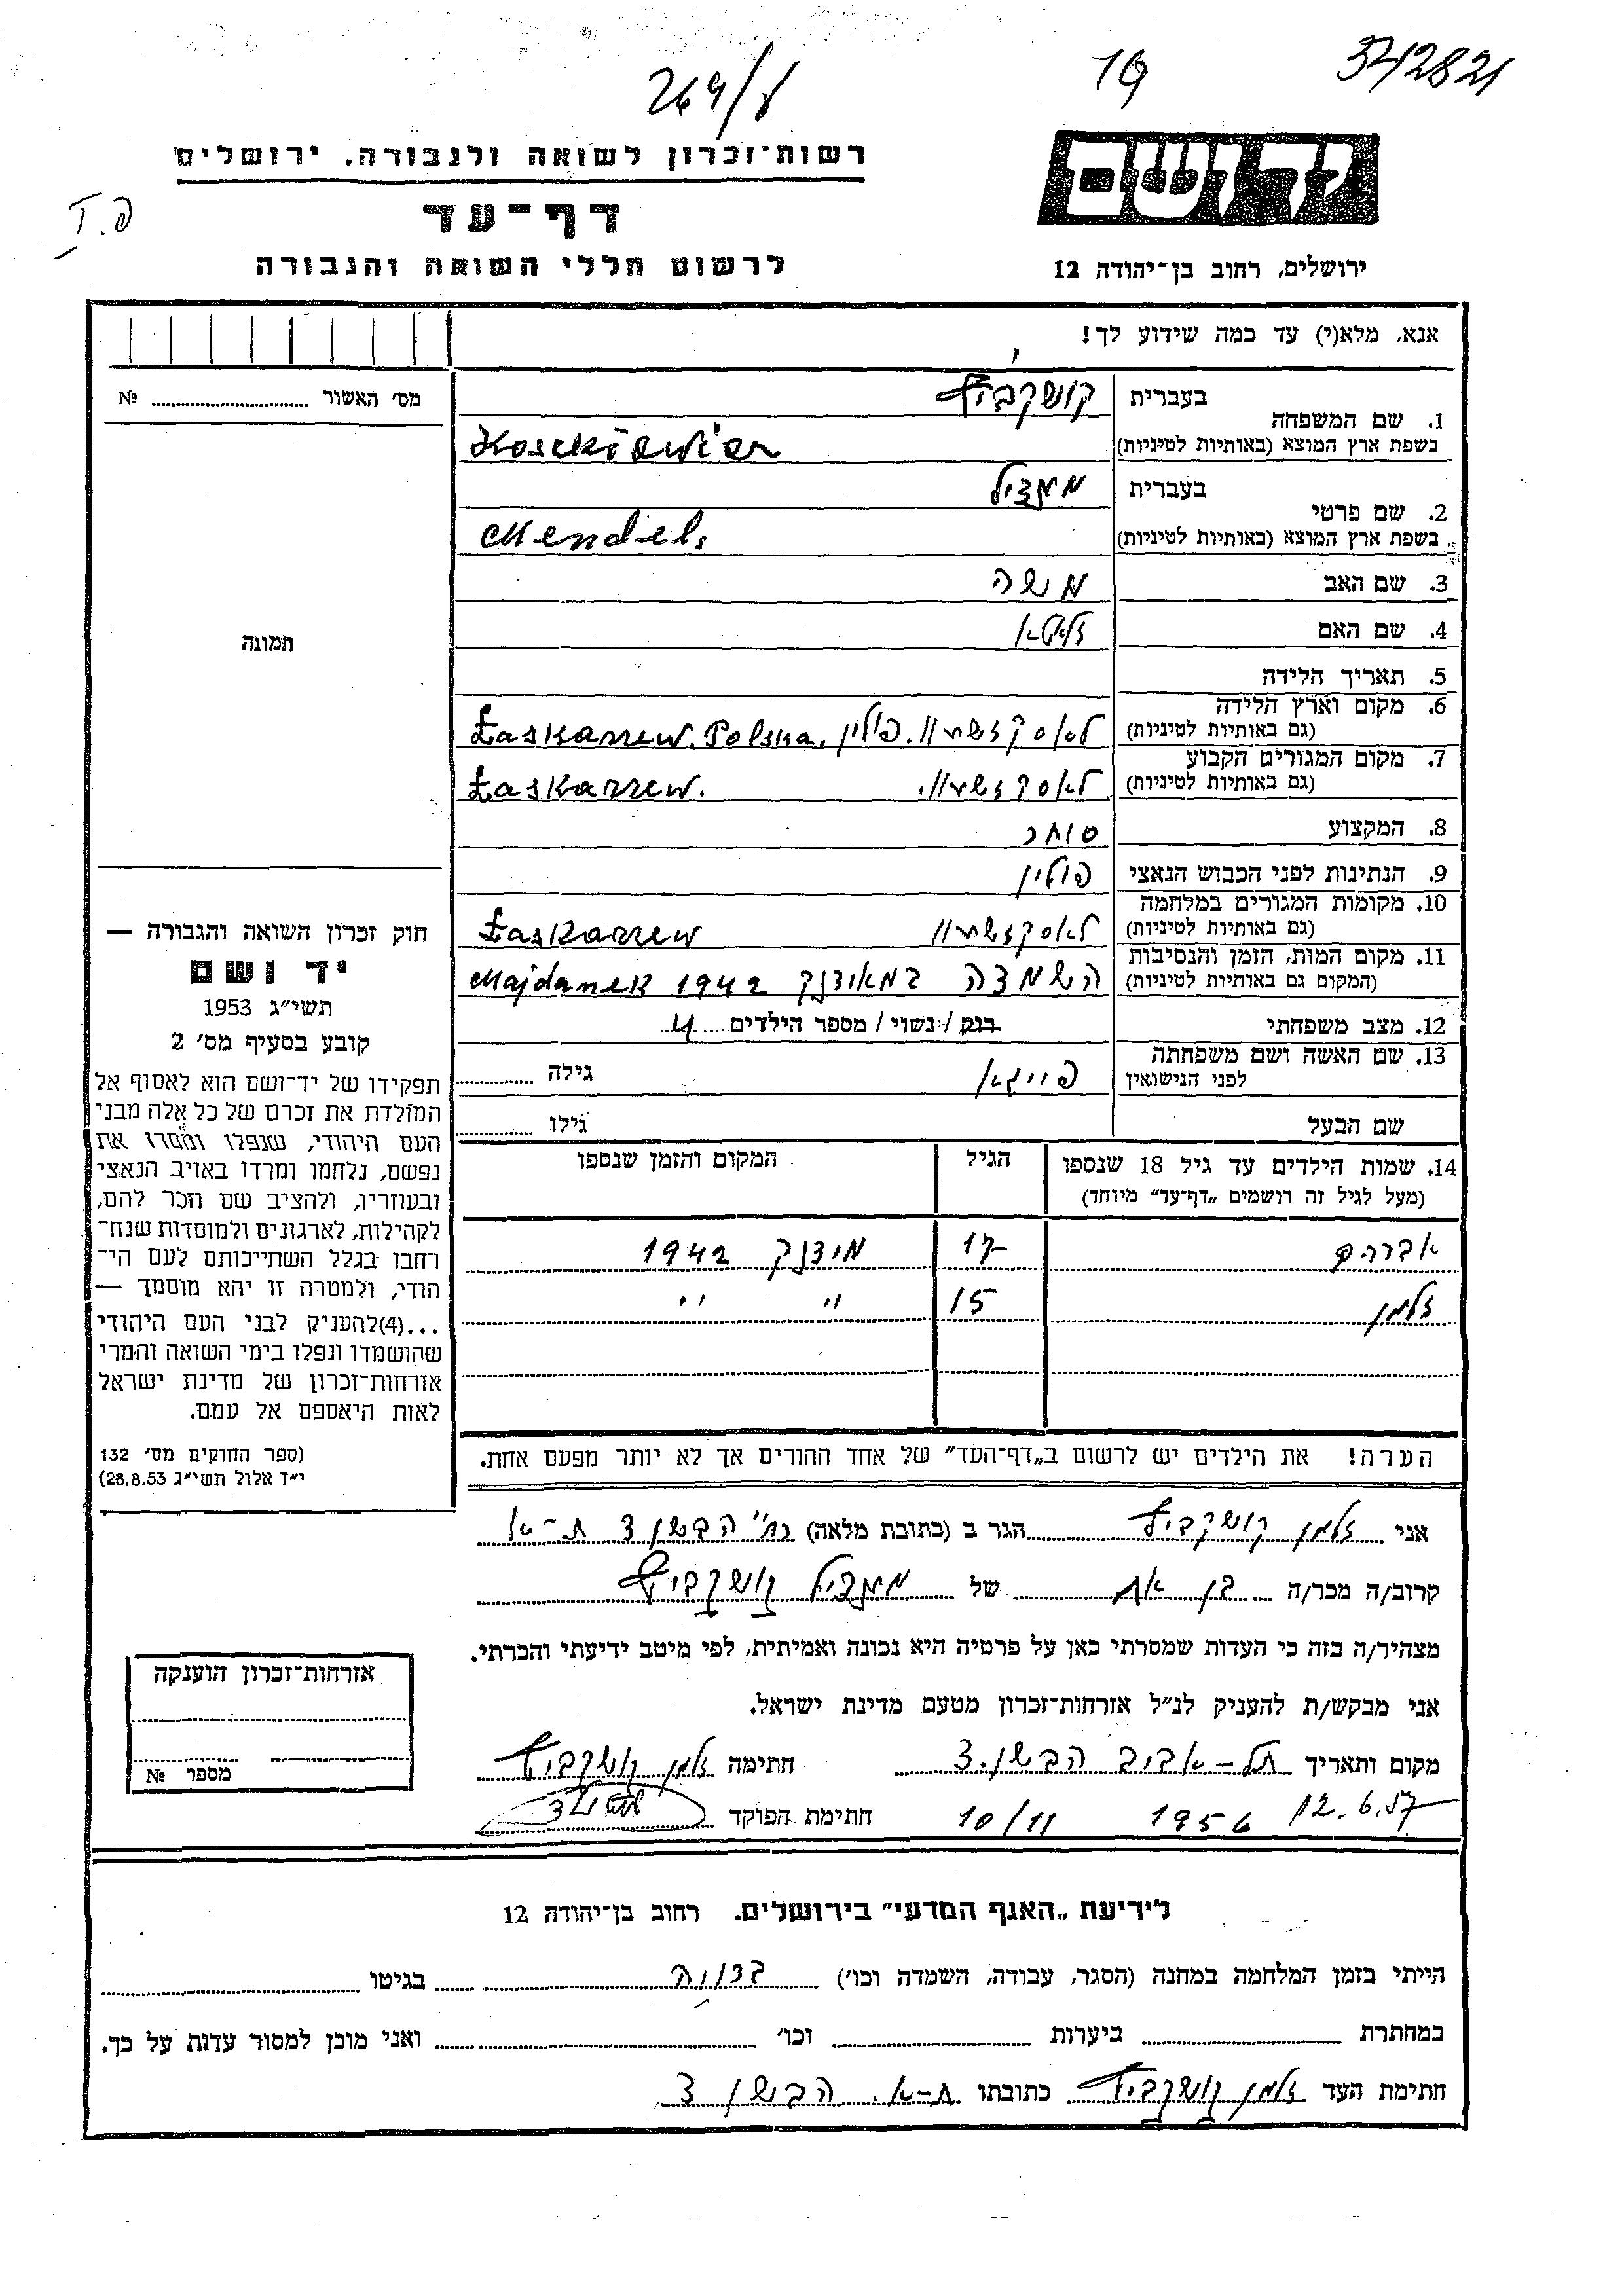 264/ע 19 342821
רשות־זכרון לשואה ולגבורה, ירושלים
יד ושם
I.פ
דף־עד
לרשום חללי השואה והגבורה
ירושלים, רחוב בן־יהודה 12
אנא, מלא(י) עד כמה שידוע לך!
מס׳ האשור № 
1. שם המשפחה בעברית קושקביץ
בשפת ארץ המוצא (באותיות לטיניות)
2. שם פרטי בעברית מנדיל
בשפת ארץ המוצא (באותיות לטיניות) Mendel.
3. שם האב משה
4. שם האם זלאטא
5. תאריך הלידה
6. מקום וארץ הלידה (גם באותיות לטיניות) פולין. Łaskarzew. Polska.
7. מקום המגורים הקבוע (גם באותיות לטיניות) Łaskarzew.
8. המקצוע סוחר
9. הנתינות לפני הכבוש הנאצי פולין
10. מקומות המגורים במלחמה (גם באותיות לטיניות) Łaskarzew
11. מקום המות, הזמן והנסיבות (המקום גם באותיות לטיניות) השמדה במאידנק 1942 Majdanek
12. מצב משפחתי רווק / נשוי / מספר הילדים 4
13. שם האשה ושם משפחתה לפני הנישואין פייגא גילה
שם הבעל גילו
14. שמות הילדים עד גיל 18 שנספו הגיל המקום והזמן שנספו
(מעל לגיל זה רושמים „דף־עד״ מיוחד)
אברהם 17 מידנק 1942
זלמן 15 ״ ״
הערה! את הילדים יש לרשום ב„דף־העד״ של אחד ההורים אך לא יותר מפעם אחת.
תמונה
חוק זכרון השואה והגבורה —
יד ושם
תשי״ג 1953
קובע בסעיף מס׳ 2
תפקידו של יד־ושם הוא לאסוף אל
המולדת את זכרם של כל אלה מבני
העם היהודי, שנפלו ומסרו את
נפשם, נלחמו ומרדו באויב הנאצי
ובעוזריו, ולהציב שם וזכר להם,
לקהילות, לארגונים ולמוסדות שנח־
רחבו בגלל השתייכותם לעם הי־
הודי, ולמטרה זו יהא מוסמך —
...(4)להעניק לבני העם היהודי
שהושמדו ונפלו בימי השואה והמרי
אזרחות־זכרון של מדינת ישראל
לאות היאספם אל עמם.
(ספר החוקים מס׳ 132
י״ד אלול תשי״ג 28.8.53)
אני זלמן קושקביץ הגר ב (כתובת מלאה) רח׳ הבשן 3 ת-א
קרוב/ה מכר/ה בן אח של מנדיל קושקביץ
מצהיר/ה בזה כי העדות שמסרתי כאן על פרטיה היא נכונה ואמיתית, לפי מיטב ידיעתי והכרתי.
אני מבקש/ת להעניק לנ״ל אזרחות־זכרון מטעם מדינת ישראל.
מקום ותאריך תל-אביב הבשן 3 חתימה זלמן קושקביץ
12.6.57 1956 10/11 חתימת הפוקד
אזרחות־זכרון הוענקה
מספר №
לידיעת „האגף המדעי״ בירושלים. רחוב בן־יהודה 12
הייתי בזמן המלחמה במחנה (הסגר, עבודה, השמדה וכו׳) בגיטו
במחתרת ביערות וכו׳ ואני מוכן למסור עדות על כך.
חתימת העד זלמן קושקביץ כתובתו ת-א. הבשן 3